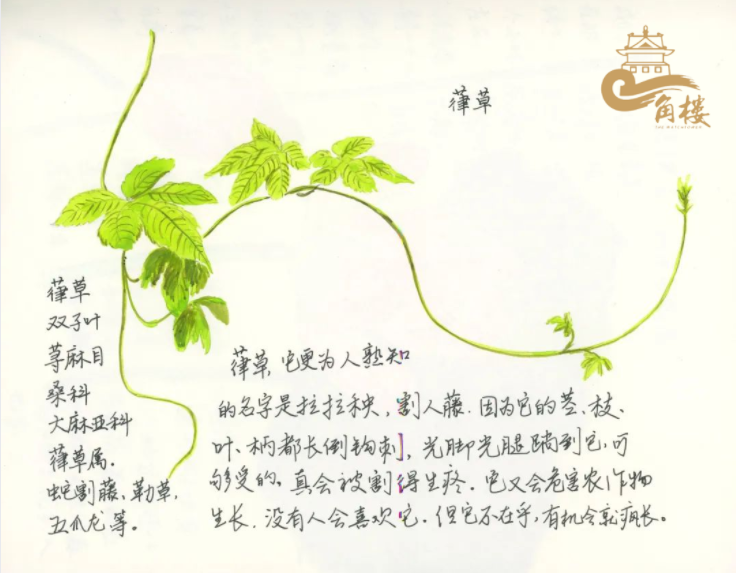 葎草
角楼
THE WATCHTOWER
葎草
双子叶
荨麻目
桑科
大麻亚科
葎草属.
蛇割藤、勒草,
五爪龙等。
葎草,它更为人熟知
的名字是拉拉秧,割人藤.因为它的茎、枝、
叶、柄都长倒钩刺,光脚光腿蹚到它,可
够受的,真会被割得生疼.它又会危害农作物
生长.没有人会喜欢它.但它不在乎,有机会就疯长。